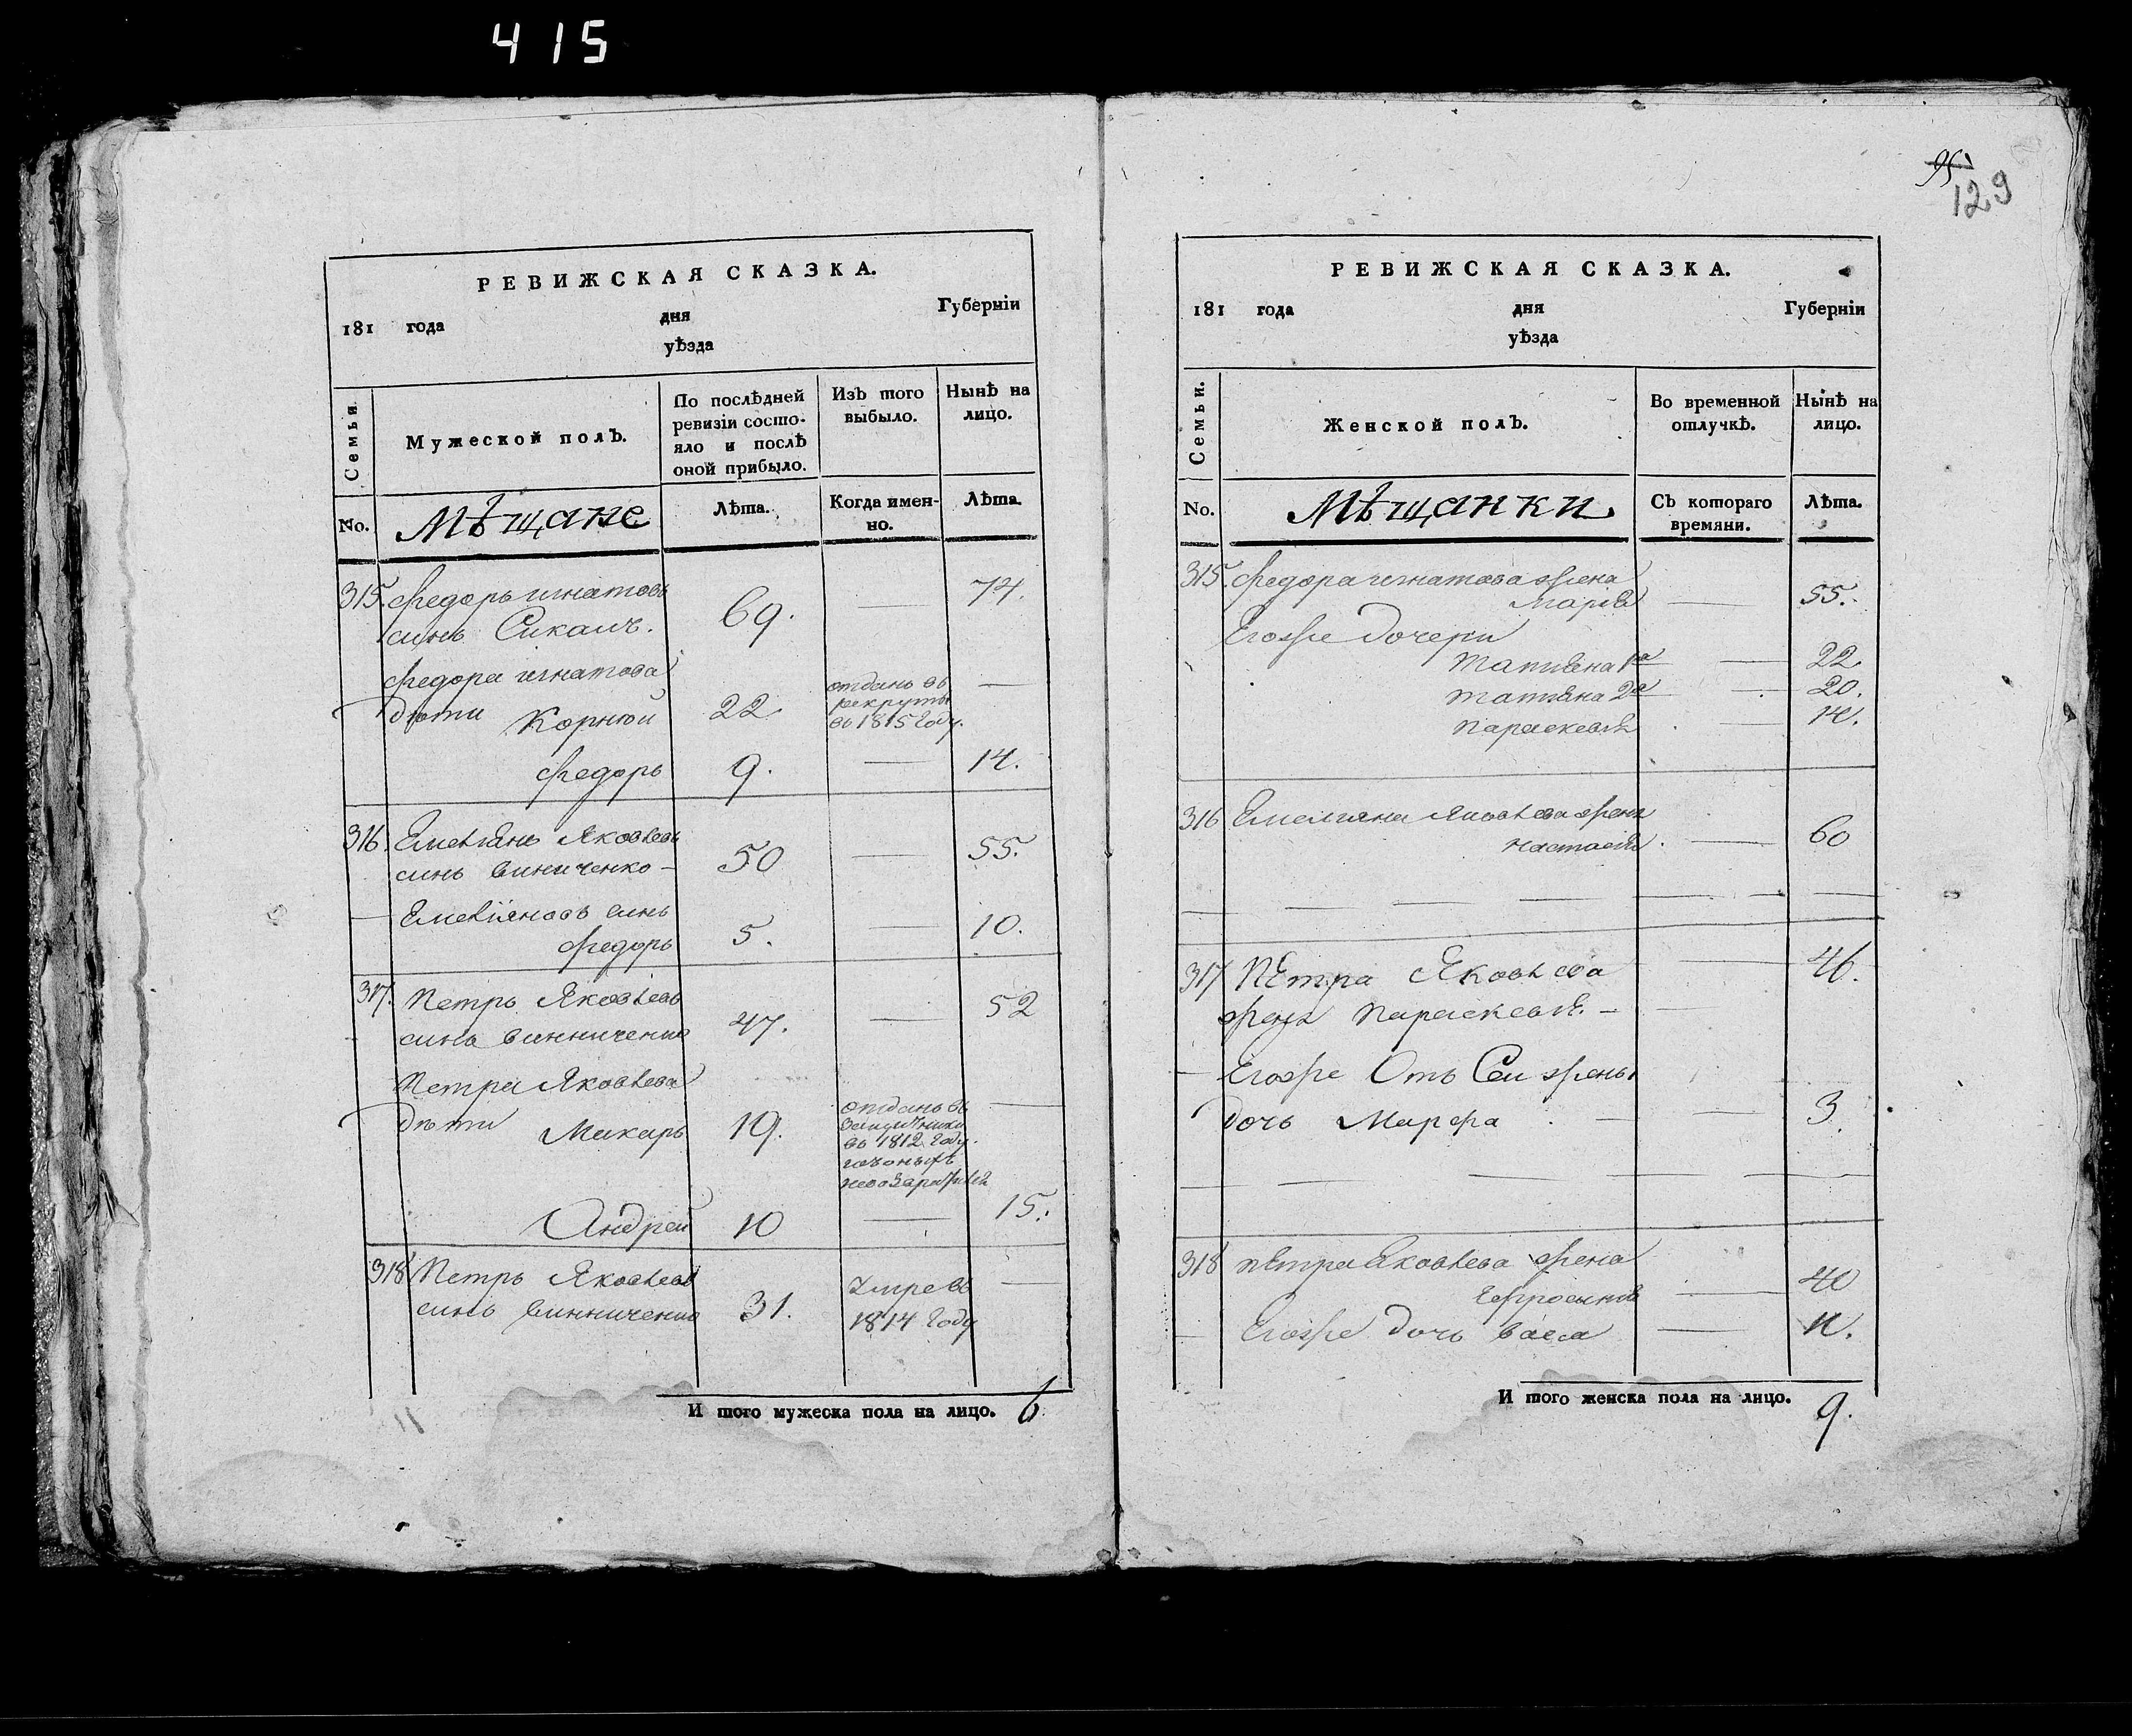 415
95
129
РЕВИЖСКАЯ СКАЗКА.
181 года дня Губерніи
уѣзда
Семьи
Мужеской полъ.
По послѣдней ревизіи состо-
яло и послѣ
оной прибыло.
Изъ того выбыло.
Нынѣ на лицо.
No.
Мѣщане
Лѣта.
Когда имен-
но.
Лѣта.
315. Федоръ игнатовъ
синъ Сикачъ. 69. — 74.
Федора игнатова
дѣти Корнюй 22 отданъ въ рекруты въ 1815 году. —
Федоръ 9. — 14.
316. Емелянъ Яковлевъ
синъ Виниченко — 50 — 55.
Емелияновъ синъ
Федоръ 5. — 10.
317. Петръ Яковлевъ
синъ Винниченко 47. — 52
Петра Яковлева
дѣти Макаръ 19. отданъ въ
въ 1812 году.
Андрей 10 — 15.
318 Петръ Яковлевъ
синъ Винниченко 31. Умре въ —
1814 году
И того мужеска пола на лицо. 6.
РЕВИЖСКАЯ СКАЗКА.
181 года дня Губерніи
уѣзда
Семьи.
Женской полъ.
Во временной
отлучкѣ.
Нынѣ на
лицо.
No.
Мѣщанки
Съ котораго
времяни.
Лѣта.
315. Федора игнатова жена
Марія — 55.
Егожъ дочери
Татияна 1я — 22
Татияна 2я — 20.
Параскевия — 14.
316 Емелияна Яковлева жена
Настасия — 60
317 Петра Яковлева — 46.
жена Параскевия. —
Егоже Отъ Сей жены
дочь Марфа — 3.
318 Петра Яковлева жена
Ефросыния — 40
Егоже дочь Васса — 11.
И того женска пола на лицо. 9.